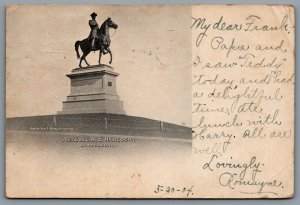 My dear Frank-
Papa and
I saw Teddy
today and had
a delightful
time, ate
lunch with
Harry. All are
well.
Lovingly.
Romayne.
5-30-04.